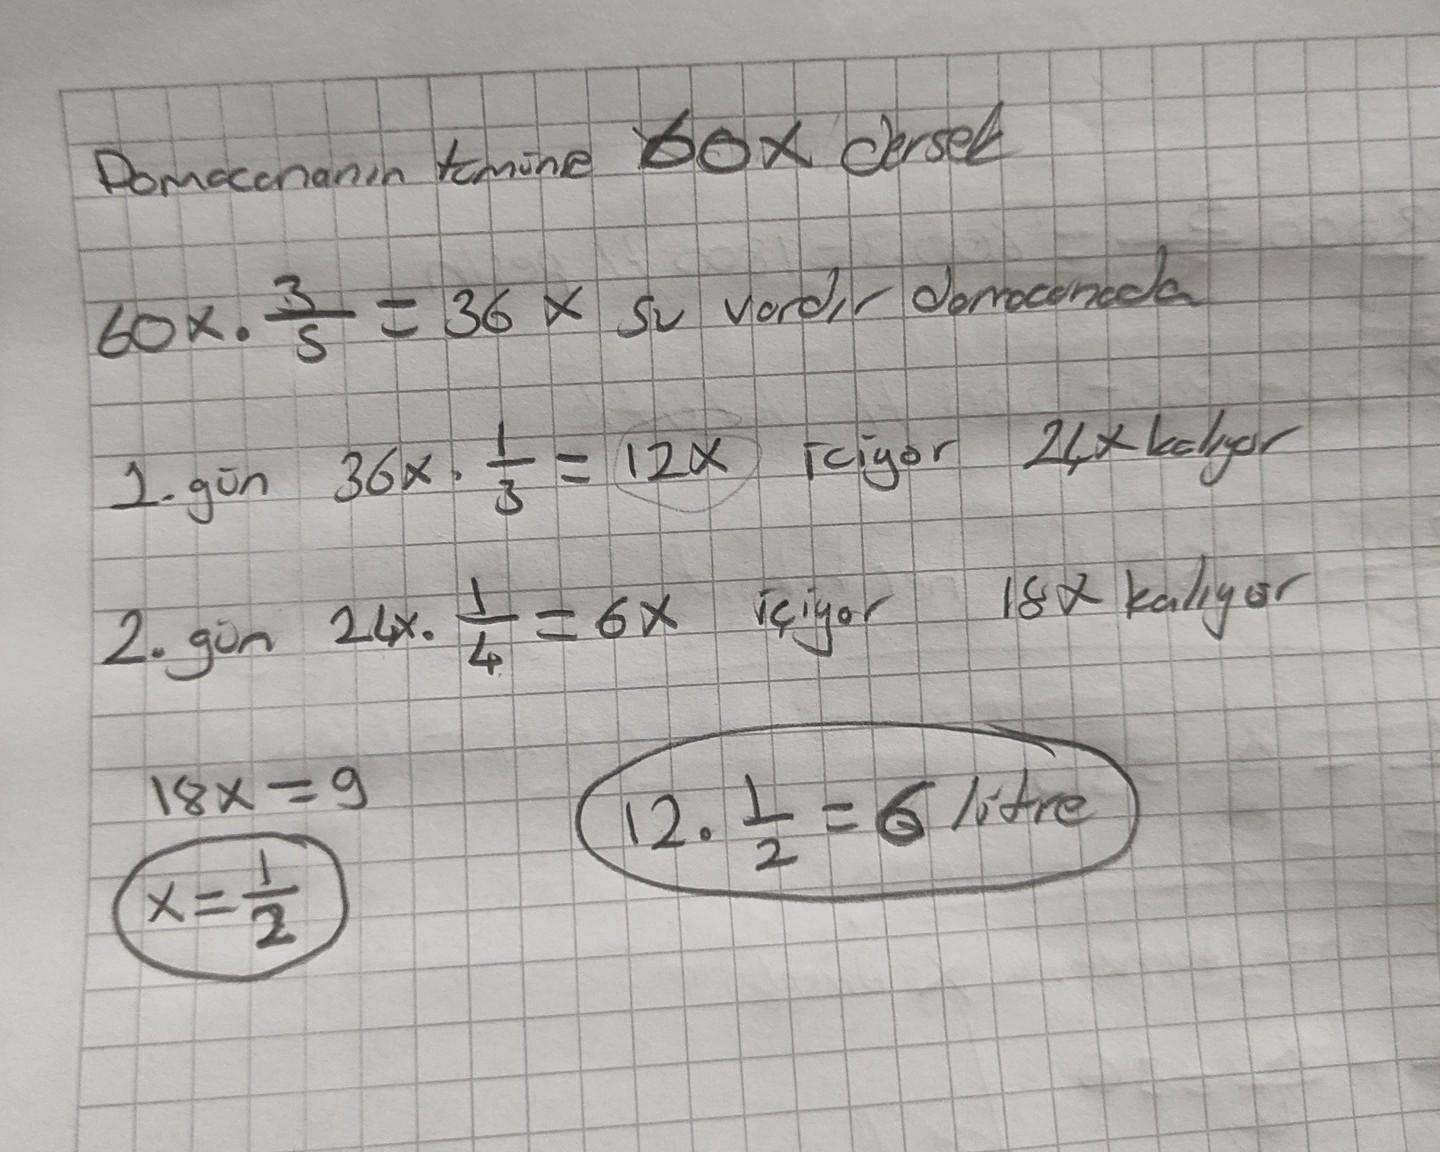 Damacananın tümüne 60x dersek
60x . 3/5 = 36x su vardır damacanada
1. gün 36x . 1/3 = 12x içiyor 24x kalıyor
2. gün 24x . 1/4 = 6x içiyor 18x kalıyor
18x = 9
x = 1/2
12 . 1/2 = 6 litre